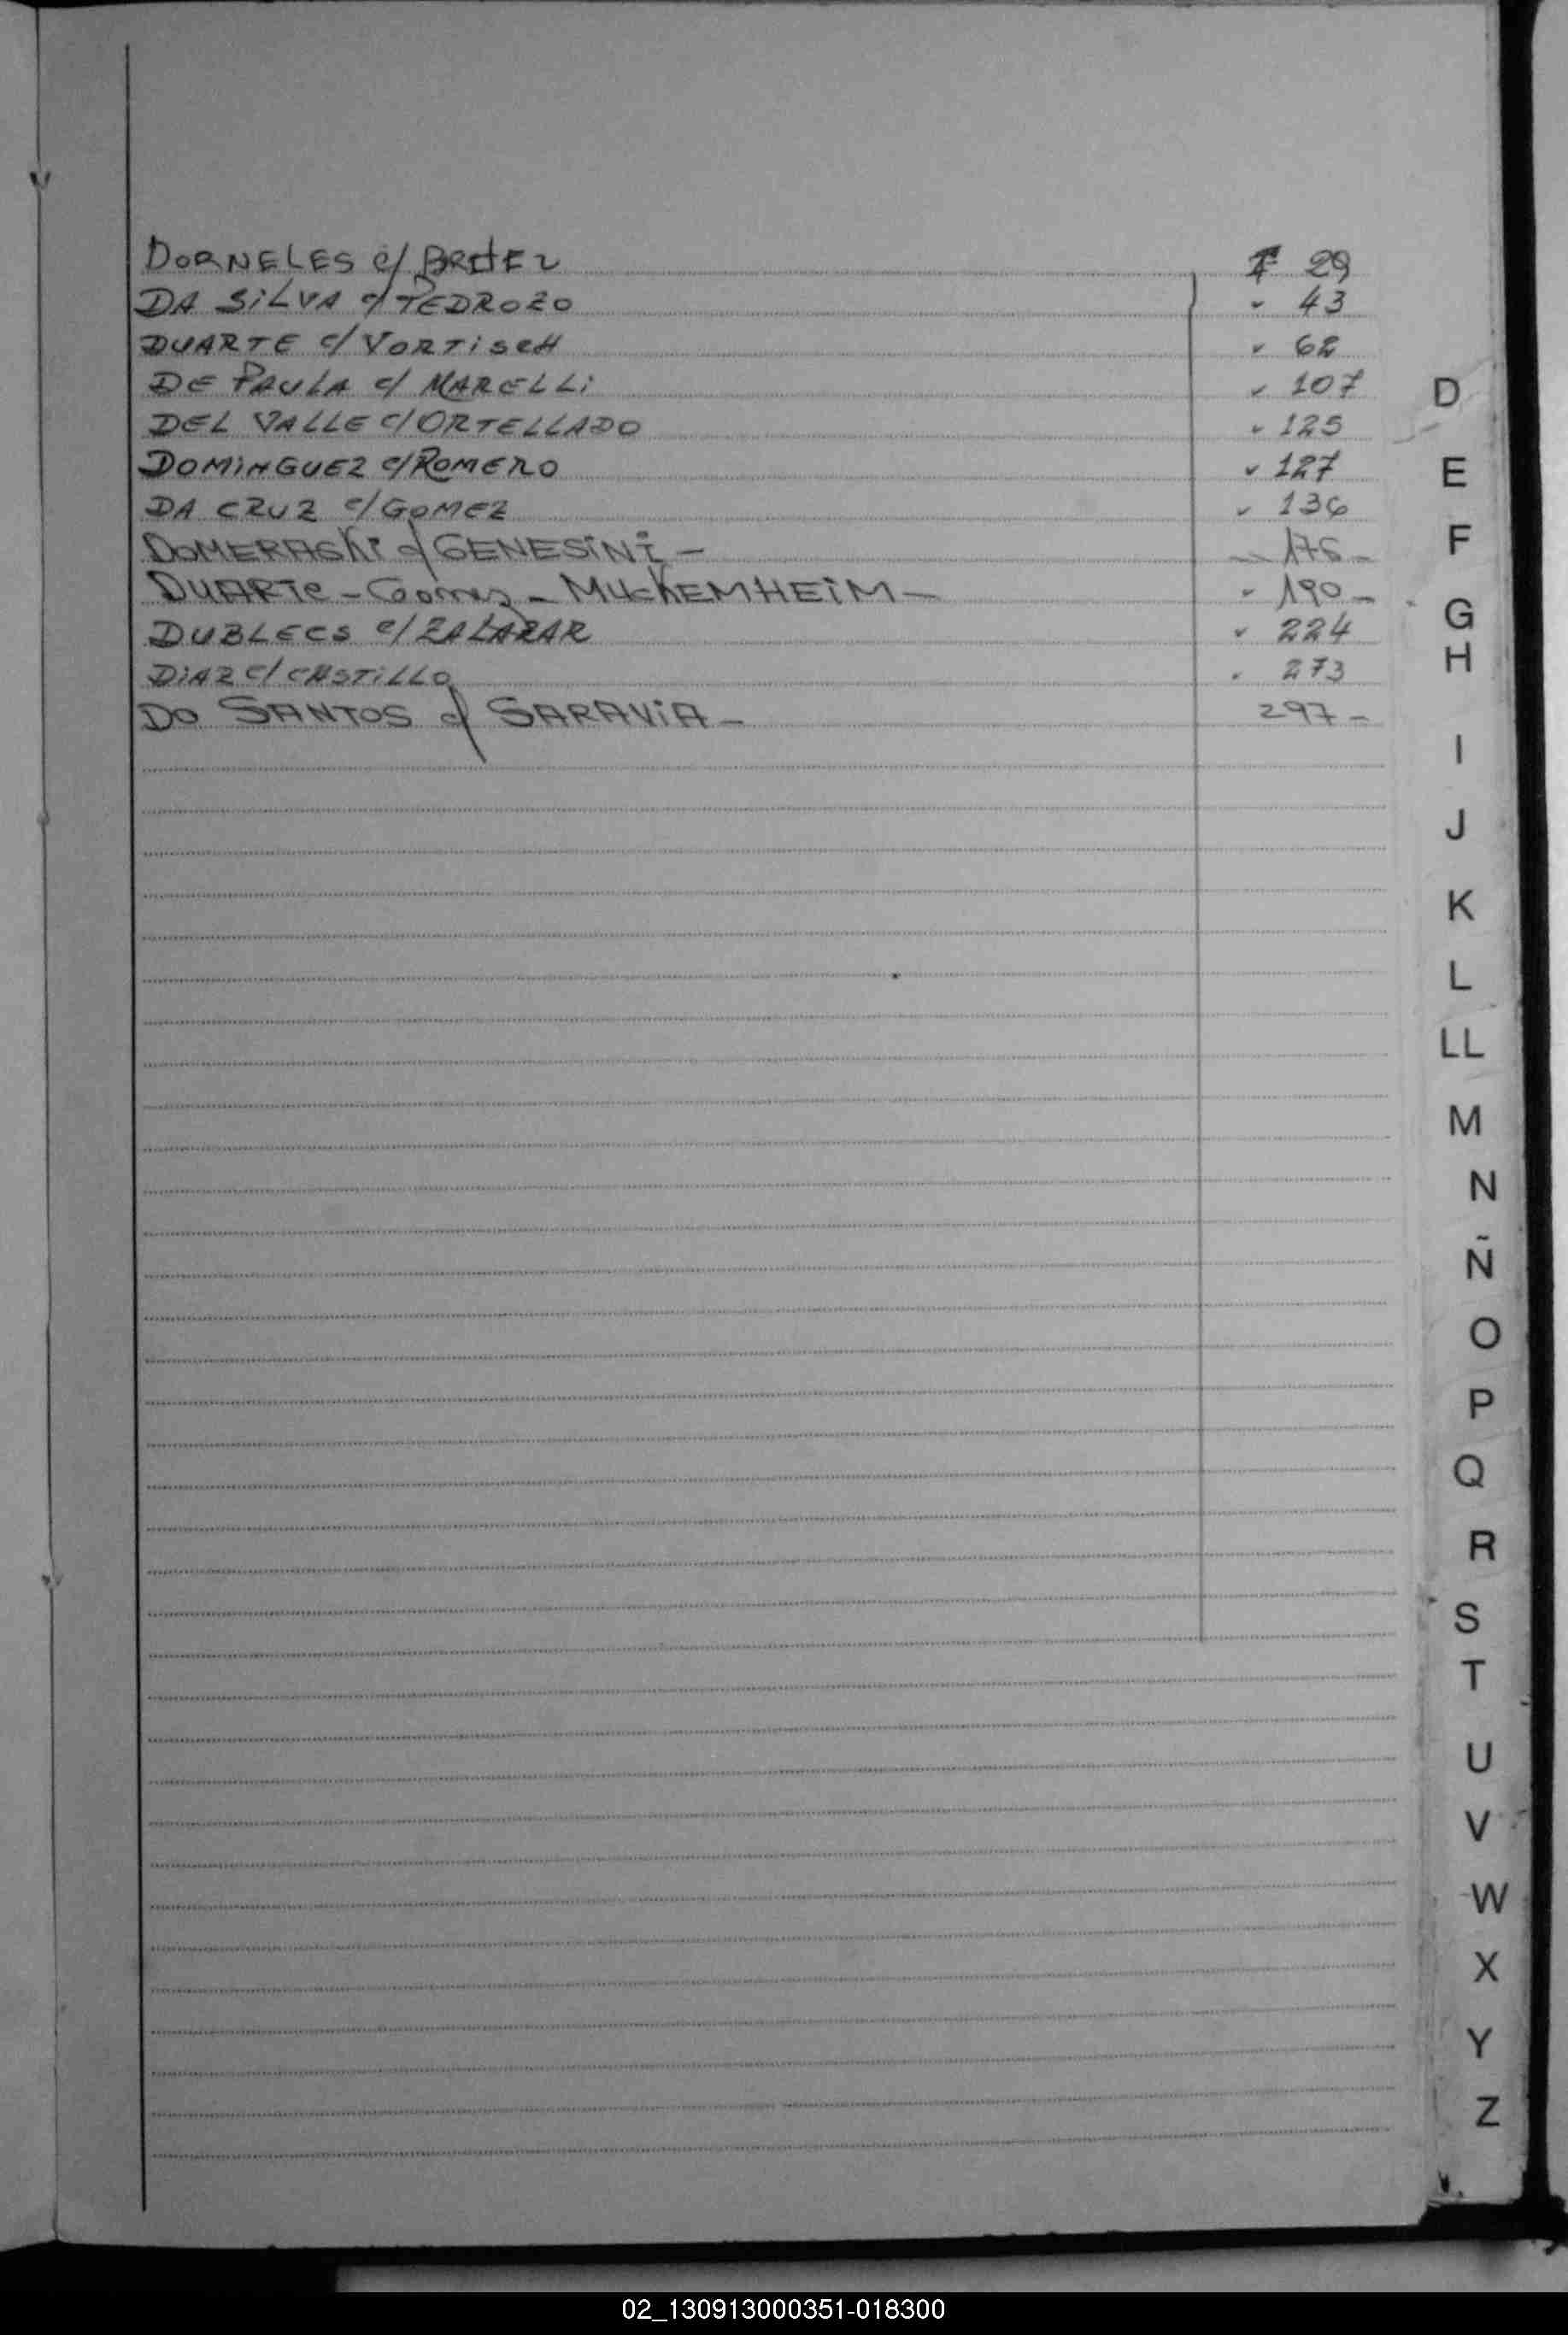 DORNELES c/ BRITEZ F 29
DA SILVA c/ PEDROZO " 43
DUARTE c/ VORTISCH " 62
DE PAULA c/ MARELLI " 107
DEL VALLE c/ ORTELLADO " 125
DOMINGUEZ c/ ROMERO " 127
DA CRUZ c/ GOMEZ " 136
DOMERASKI c/ GENESINI - 176 -
DUARTE - Gomez - MUCKEMHEIM - " 190 -
DUBLECS c/ ZALAZAR " 224
DIAZ c/ CASTILLO " 273
DO SANTOS c/ SARAVIA - 297 -
D
E
F
G
H
I
J
K
L
LL
M
N
Ñ
O
P
Q
R
S
T
U
V
W
X
Y
Z
02_130913000351-018300